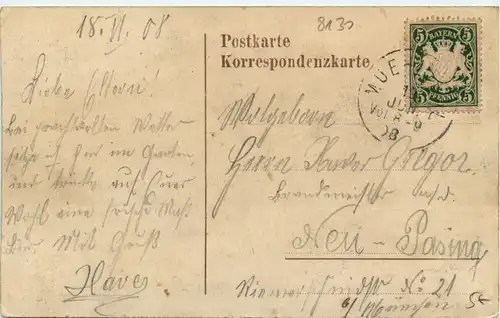 18. VI. 08
8130
Liebe Eltern!
Bei prachtvollem Wetter
sitze ich hier im Garten
und trinke auf Euer
Wohl eine frische Maß
Bier Mit Gruß
Postkarte
Korrespondenzkarte
BAYERN
5 5
5 PFENNIG 5
MUE
JUN
VOR 8-9
08
Wolgeboren
Herrn Xaver Gregor
Neu-Pasing
No 21
b/ München